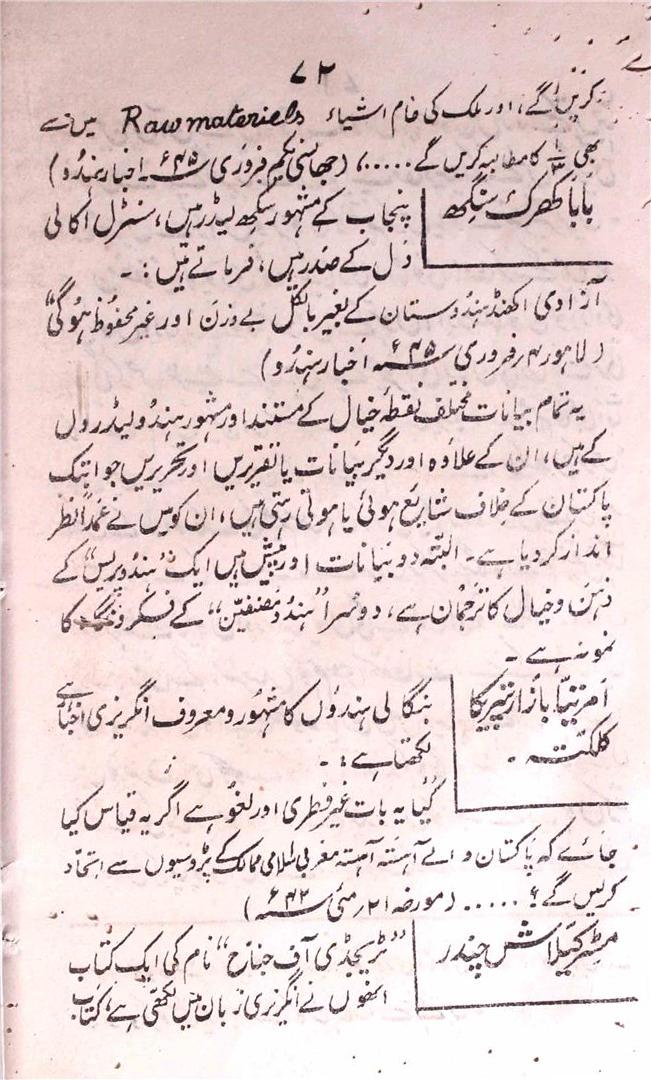 ۷۲
کریں گے، اور ملک کی خام اشیاء Raw materiels میں سے
بھی ۱/۳ کا مطالبہ کریں گے .....، (جھانسی یکم فروری ۴۵ء اخبار ہندو)
بابا کھرک سنگھ
پنجاب کے مشہور سکھ لیڈر ہیں، سنٹرل اکالی
دل کے صدر ہیں، فرماتے ہیں :۔
آزادی اکھنڈ ہندوستان کے بغیر بالکل بے وزن اور غیر محفوظ ہوگی"
(لاہور ۴؍ فروری ۴۵ء اخبار ہندو)
یہ تمام بیانات مختلف نقطۂ خیال کے مستند اور مشہور ہندو لیڈروں
کے ہیں، ان کے علاوہ اور دیگر بیانات یا تقریریں اور تحریریں جو ابتک
پاکستان کے خلاف شایع ہوئی یا ہوتی رہتی ہیں، ان کو میں نے عمداً نظر
انداز کر دیا ہے۔ البتہ دو بیانات اور پیش ہیں ایک "ہندو پریس" کے
ذہن و خیال کا ترجمان ہے، دوسرا "ہندو مصنفین" کے فکر و کا
نمونہ ہے۔
امرتیا بازار پتریکا
کلکتہ۔
بنگالی ہندوں کا مشہور و معروف انگریزی اخبار ہے
لکھتا ہے :۔
کیا یہ بات غیر فطری اور لغو ہے اگر یہ قیاس کیا
جائے کہ پاکستان والے آہستہ آہستہ مغربی اسلامی ممالک کے پڑوسیوں سے اتحاد
کریں گے؟ ..... (مورخہ ۲۱؍ مئی ۴۲ء)
مسٹر کیلاش چندر
"ٹریجڈی آف جناح" نام کی ایک کتاب
انھوں نے انگریزی زبان میں لکھی ہے، کتاب